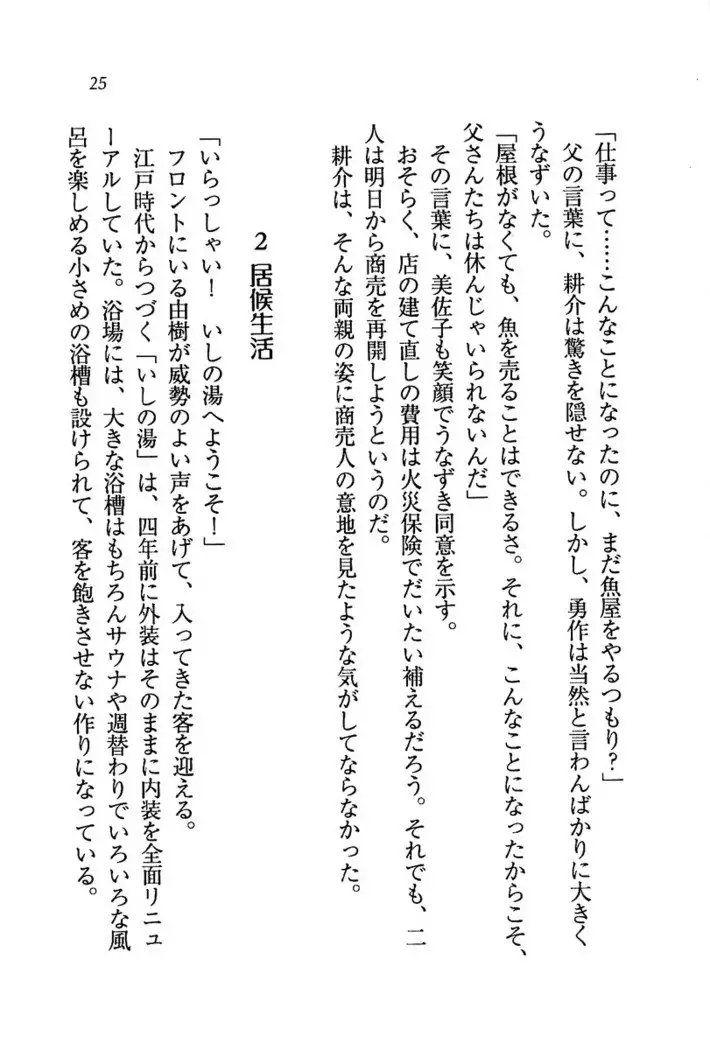 25
「仕事って……こんなことになったのに、まだ魚屋をやるつもり？」
父の言葉に、耕介は驚きを隠せない。しかし、勇作は当然と言わんばかりに大きく
うなずいた。
「屋根がなくても、魚を売ることはできるさ。それに、こんなことになったからこそ、
父さんたちは休んじゃいられないんだ」
その言葉に、美佐子も笑顔でうなずき同意を示す。
おそらく、店の建て直しの費用は火災保険でだいたい補えるだろう。それでも、二
人は明日から商売を再開しようというのだ。
耕介は、そんな両親の姿に商売人の意地を見たような気がしてならなかった。
2 居候生活
「いらっしゃい！　いしの湯へようこそ！」
フロントにいる由樹が威勢のよい声をあげて、入ってきた客を迎える。
江戸時代からつづく「いしの湯」は、四年前に外装はそのままに内装を全面リニュ
ーアルしていた。浴場には、大きな浴槽はもちろんサウナや週替わりでいろいろな風
呂を楽しめる小さめの浴槽も設けられて、客を飽きさせない作りになっている。